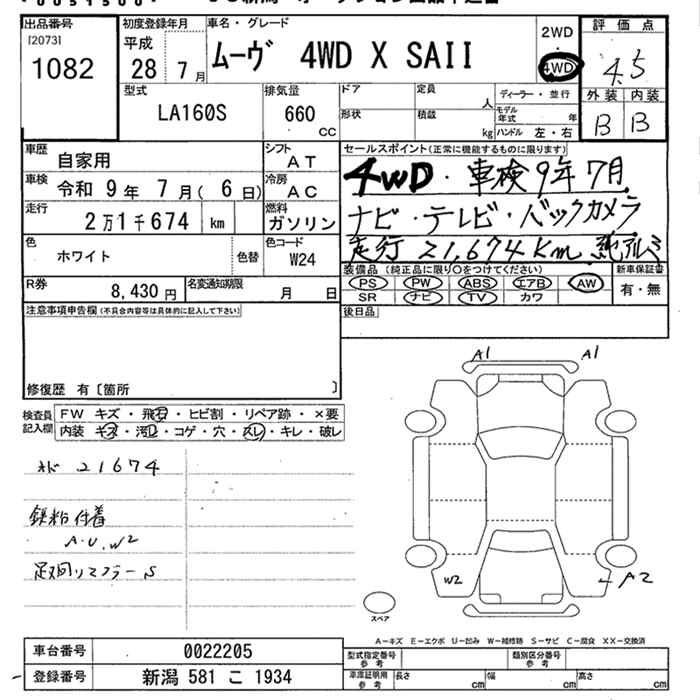 出品番号
[2073]
1082
初度登録年月
平成
28 年 7 月
車名・グレード
ムーヴ 4WD X SAII
2WD
・
4WD
評価点
4.5
外装 内装
B B
型式
LA160S
排気量
660
cc
ドア
定員
人
形状
積載
kg
ディーラー・並行
モデル年式 年
ハンドル 左・右
車歴
自家用
シフト
AT
車検
令和 9年 7月( 6日)
冷房
AC
走行
2万1千674 km
燃料
ガソリン
色
ホワイト
色替
色コード
W24
R券
8,430 円
名変通知期限
月 日
セールスポイント(正常に機能するものに限ります)
4WD・車検9年7月
ナビ・テレビ・バックカメラ
走行 21,674km、純アルミ
装備品(純正品に限り○をつけてください)
PS PW ABS エアB AW
SR ナビ TV カワ
新車保証書
有・無
後日品
注意事項申告欄(不具合内容等は具体的に記入して下さい)
修復歴 有〔箇所 〕
検査員記入欄
FW キズ・飛石・ヒビ割・リペア跡・×要
内装 キズ・汚れ・コゲ・穴・スレ・キレ・破レ
21674
錆粉付着
A.U.W2
足回リマフラーS
A1 A1
W2
A2
スペア
A―キズ E―エクボ U―凹み W―補修跡 S―サビ C―腐食 XX―交換済
車台番号
0022205
登録番号
新潟 581 こ 1934
型式指定番号
参考
類別区分番号
参考
車庫証明用
参考
長さ cm
幅 cm
高さ cm